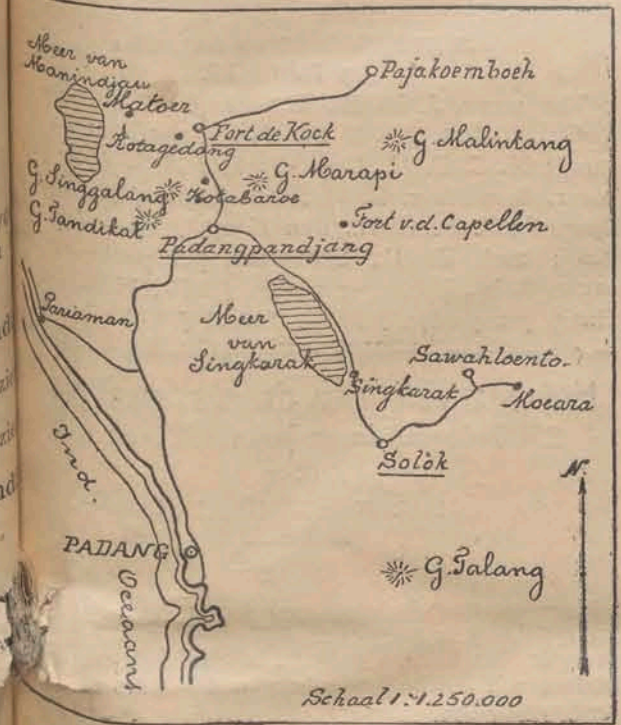 Meer van
Manindjau
Matoer
Kotagedang
Pajakoemboeh
Fort de Kock
G. Malintang
G. Singgalang
Kotabaroe
G. Marapi
G. Tandikat
Fort v.d. Capellen
Padangpandjang
Pariaman
Meer
van
Singkarak
Sawahloento
Singkarak
Moeara
Solok
Ind.
Oceaan
N.
PADANG
G. Talang
Schaal 1:1.250.000